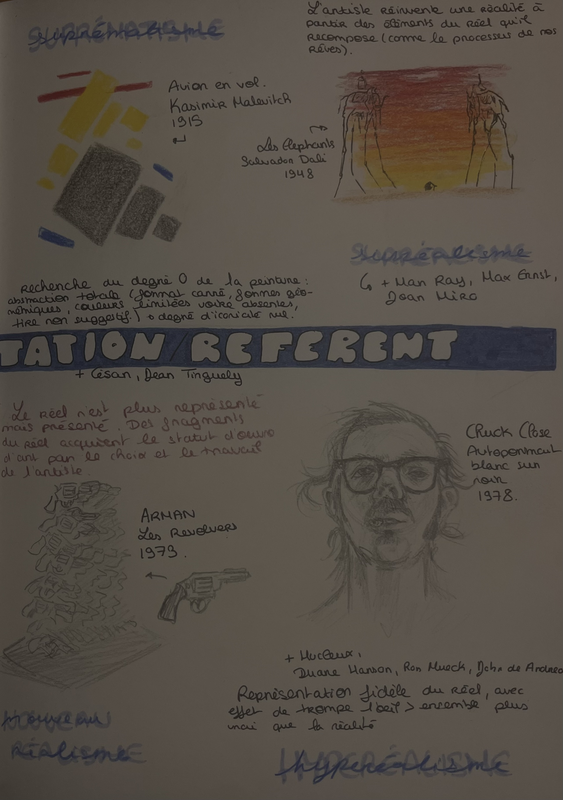 Suprématisme
Avion en vol.
Kasimir Malevitch
1915
Recherche du degré 0 de la peinture :
abstraction totale (format carré, formes géo-
métriques, couleurs limitées voire absentes,
titre non suggestif.) → degré d'iconicité nul.
L'artiste réinvente une réalité à
partir des éléments du réel qu'il
recompose (comme le processus de nos
rêves).
Les Elephants
Salvador Dali
1948
Surréalisme
↳ + Man Ray, Max Ernst,
Joan Miro
TATION REFERENT
+ César, Jean Tinguely
Le Réel n'est plus représenté
mais présenté. Des fragments
du réel acquièrent le statut d'oeuvre
d'art par le choix et le travail
de l'artiste.
ARMAN
Les Revolvers
1979.
nouveau
réalisme
Chuck Close
Autoportrait
blanc sur
noir
1978.
+
Duane Hanson, Ron Mueck, John de Andrea
Représentation fidèle du réel, avec
effet de trompe l'oeil > encore plus
vrai que la réalité
hyperéalisme